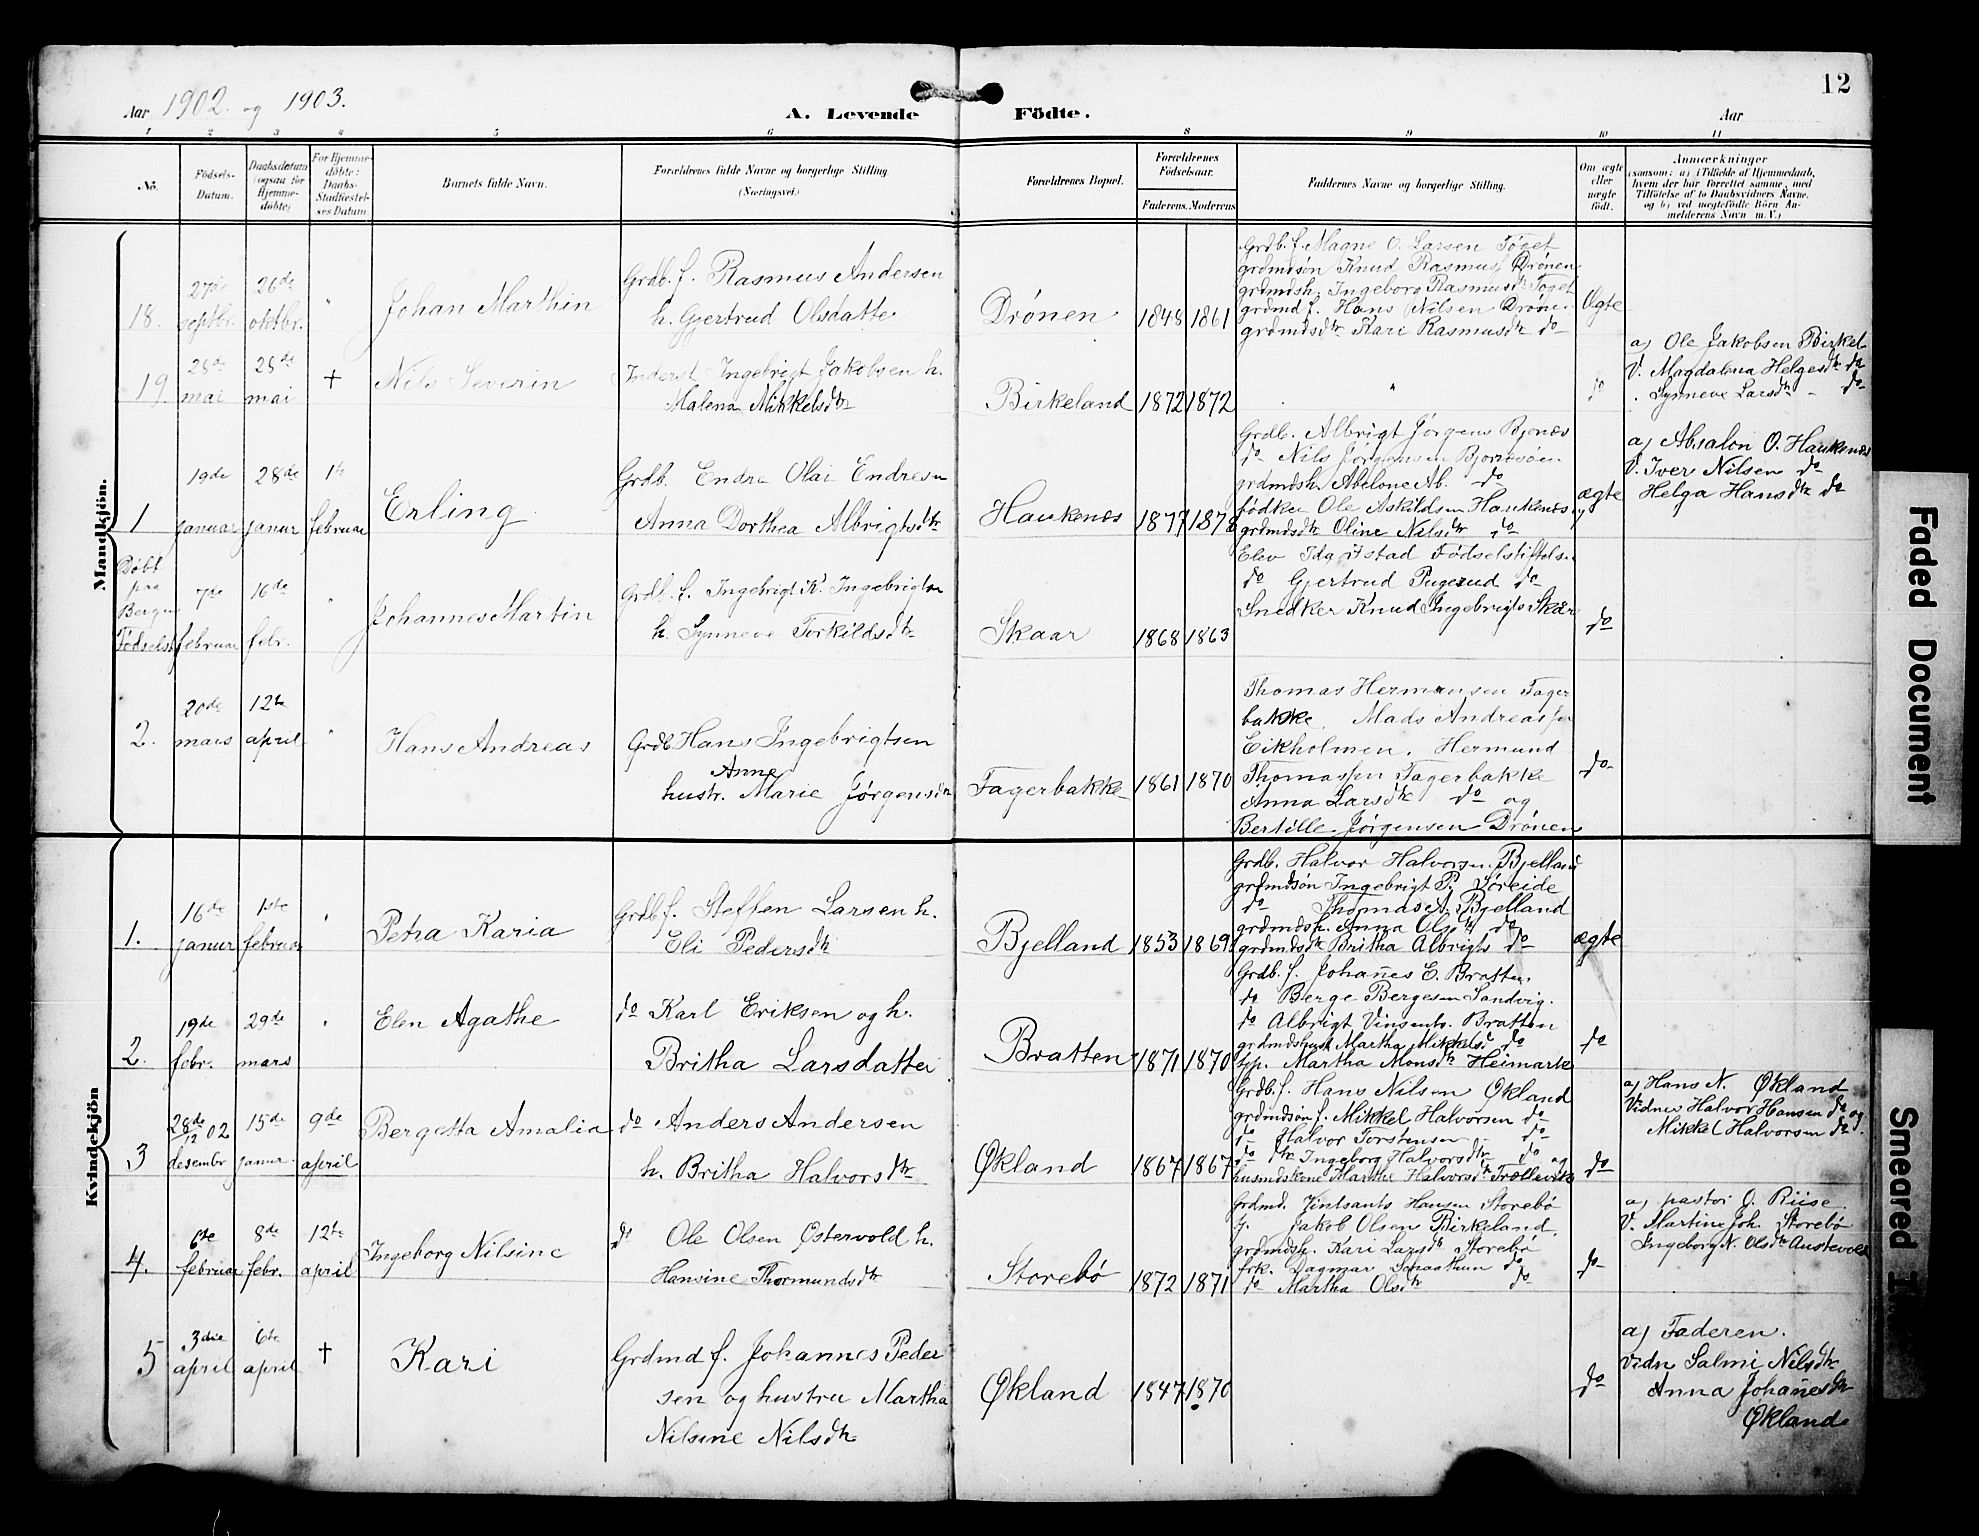 12
Aar 1902. og 1903.
A. Levende Födte.
Aar
1 2 3 4 5 6 8 9 10 11
No.
Födsels-
Datum.
Daabsdatum
(ogsaa for
Hjemme-
döbte)
For Hjemme-
döbte:
Daabs-
Stadfæstel-
ses-Datum
Barnets fulde Navn.
Forældrenes fulde Navne og borgerlige Stilling.
(Næringsvei.)
Forældrenes Bopæl.
Forældrenes
Födselsaar.
Faderens. Moderens
Faddernes Navne og borgerlige Stilling.
Om ægte
eller
uægte
födt.
Anmærkninger
(saasom: a) i Tilfælde af Hjemmedaab,
hvem der har forrettet samme, med
Tilföielse af to Daabsvidners Navne,
og b) ved uægtefödte Börn An-
melderens Navn m. V.)
Mandkjön.
18.
27de
septbr.
26de
oktbr.
"
Johan Marthin
Grdb. f. Rasmus Andersen
h. Gjertrud Olsdatter
Drönen
1848 1861
Grdb. f. Magne O. Larsen Töget
grdmdsön Knud Rasmuss Drönen
grdmdsh. Ingeborg Rasmusdtr Töget
grdmd f. Hans Nilsen Drönen
grdmdsdtr Kari Rasmusdtr do
Ægte
19.
28de
mai
28de
mai
†
Nils Severin
Inderst Ingebrigt Jakobsen h.
Malena Mikkelsdtr
Birkeland
1872 1872
"
do
a) Ole Jakobsen Birkel
V. Magdalena Helgesdtr do
Synneve Larsdtr - do
1
19de
januar
28de
janur
1te
februar
Erling
Grdb. Endre Olai Endresen
Anna Dorthea Albrigtsdtr
Haukenæs
1877 1878
Grdb. Albrigt Jörgens Bjonæs
do Nils Jörgensen
grdmdsh. Abelone do
Ole Askildsen Haukenæs
grdmdsdtr Oline Nilsdtr do
ægte
a) Absalon O. Haukenæs
V. Iver Nilsen do
Helga Hansdtr do
Döbt
paa
Bergens
Födselst
7de
februar
16de
febr.
"
Johannes Martin
Grdb. f. Ingebrigt K. Ingebrigtsen
h. Synneve Torkildsdtr
Skaar
1868 1863
Elev Ida Födselstiftelsen
do Gjertrud do
Snedker Knud Ingebrigts Skaar
do
2.
20de
mars
12te
april
"
Hans Andreas
Grdb. Hans Ingebrigtsen
Anne
hustr. Marie Jørgensdtr
Fagerbakke
1861 1870
Thomas Hermansen Fager
bakke. Mads Andreassen
Eikholmen. Hermund
Thomassen Fagerbakke
Anna Larsdtr do og
Bertille Jørgensen Drönen
do
Kvindekjön
1.
16de
janur
1ste
februar
"
Petra Karia
Grdb f. Steffen Larsen h.
Eli Pedersdtr
Bjelland
1853 1869
Grdb. Halvor Halvorsen Bjelland
grdmdsön Ingebrigt P. Söreide
do Thomas A. Bjelland
grdmdsh. Anna Olsdtr do
grdmdsdtr Britha Albrigts do
ægte
2.
19de
febr.
29de
mars
"
Elen Agathe
do Karl Eriksen og h.
Britha Larsdatter
Bratten
1871 1870
Grdb. f. Johanes E. Bratten
do Berge Bergesen Sandvig.
do Albrigt Vinsents. Bratten
grdmdshust Martha Mikkelsd do
tjp. Martha Monsdtr Heimark
do
3
28de
12 02
desembr
15de
janur.
9de
april
Bergetta Amalia
do Anders Andersen
h. Britha Halvorsdtr
Økland
1867 1867
Grdb. f. Hans Nilsen Økland
grdmdsön f. Mikkel Halvorsen do
do Halvor Torstensen do
do dtr Ingeborg Halvorsdtr do og
husmdskone Marthe Halvorsdtr Trællevik
do
a) Hans N. Økland
Vidner Halvor Hansen do og
Mikkel Halvorsen do
4.
6te
februar
8de
febr.
12te
april
Ingeborg Nilsine
do Ole Olsen Østervold h.
Hansine Thormundsdtr
Storebö
1872 1871
Grdmd. Vintsants Hansen Storebö
Jakob Olsen Birkeland.
grdmdsh. Kari Larsdtr Storebö
frk. Dagmar do
do Martha Olsdtr do
do
a) pastor O. Riise.
V. Martine Joh. Storebö
Ingeborg N. Olsdtr Austevold
5
3die
april
6te
april
†
Kari
Grdmd f. Johannes Peder
sen og hustru Martha
Nilsine Nilsdtr
Økland
1847 1870
do
a) Faderen.
Vidn Salmi Nilsdtr
Anna Johanesdtr
Økland
Faded Document
Smeared